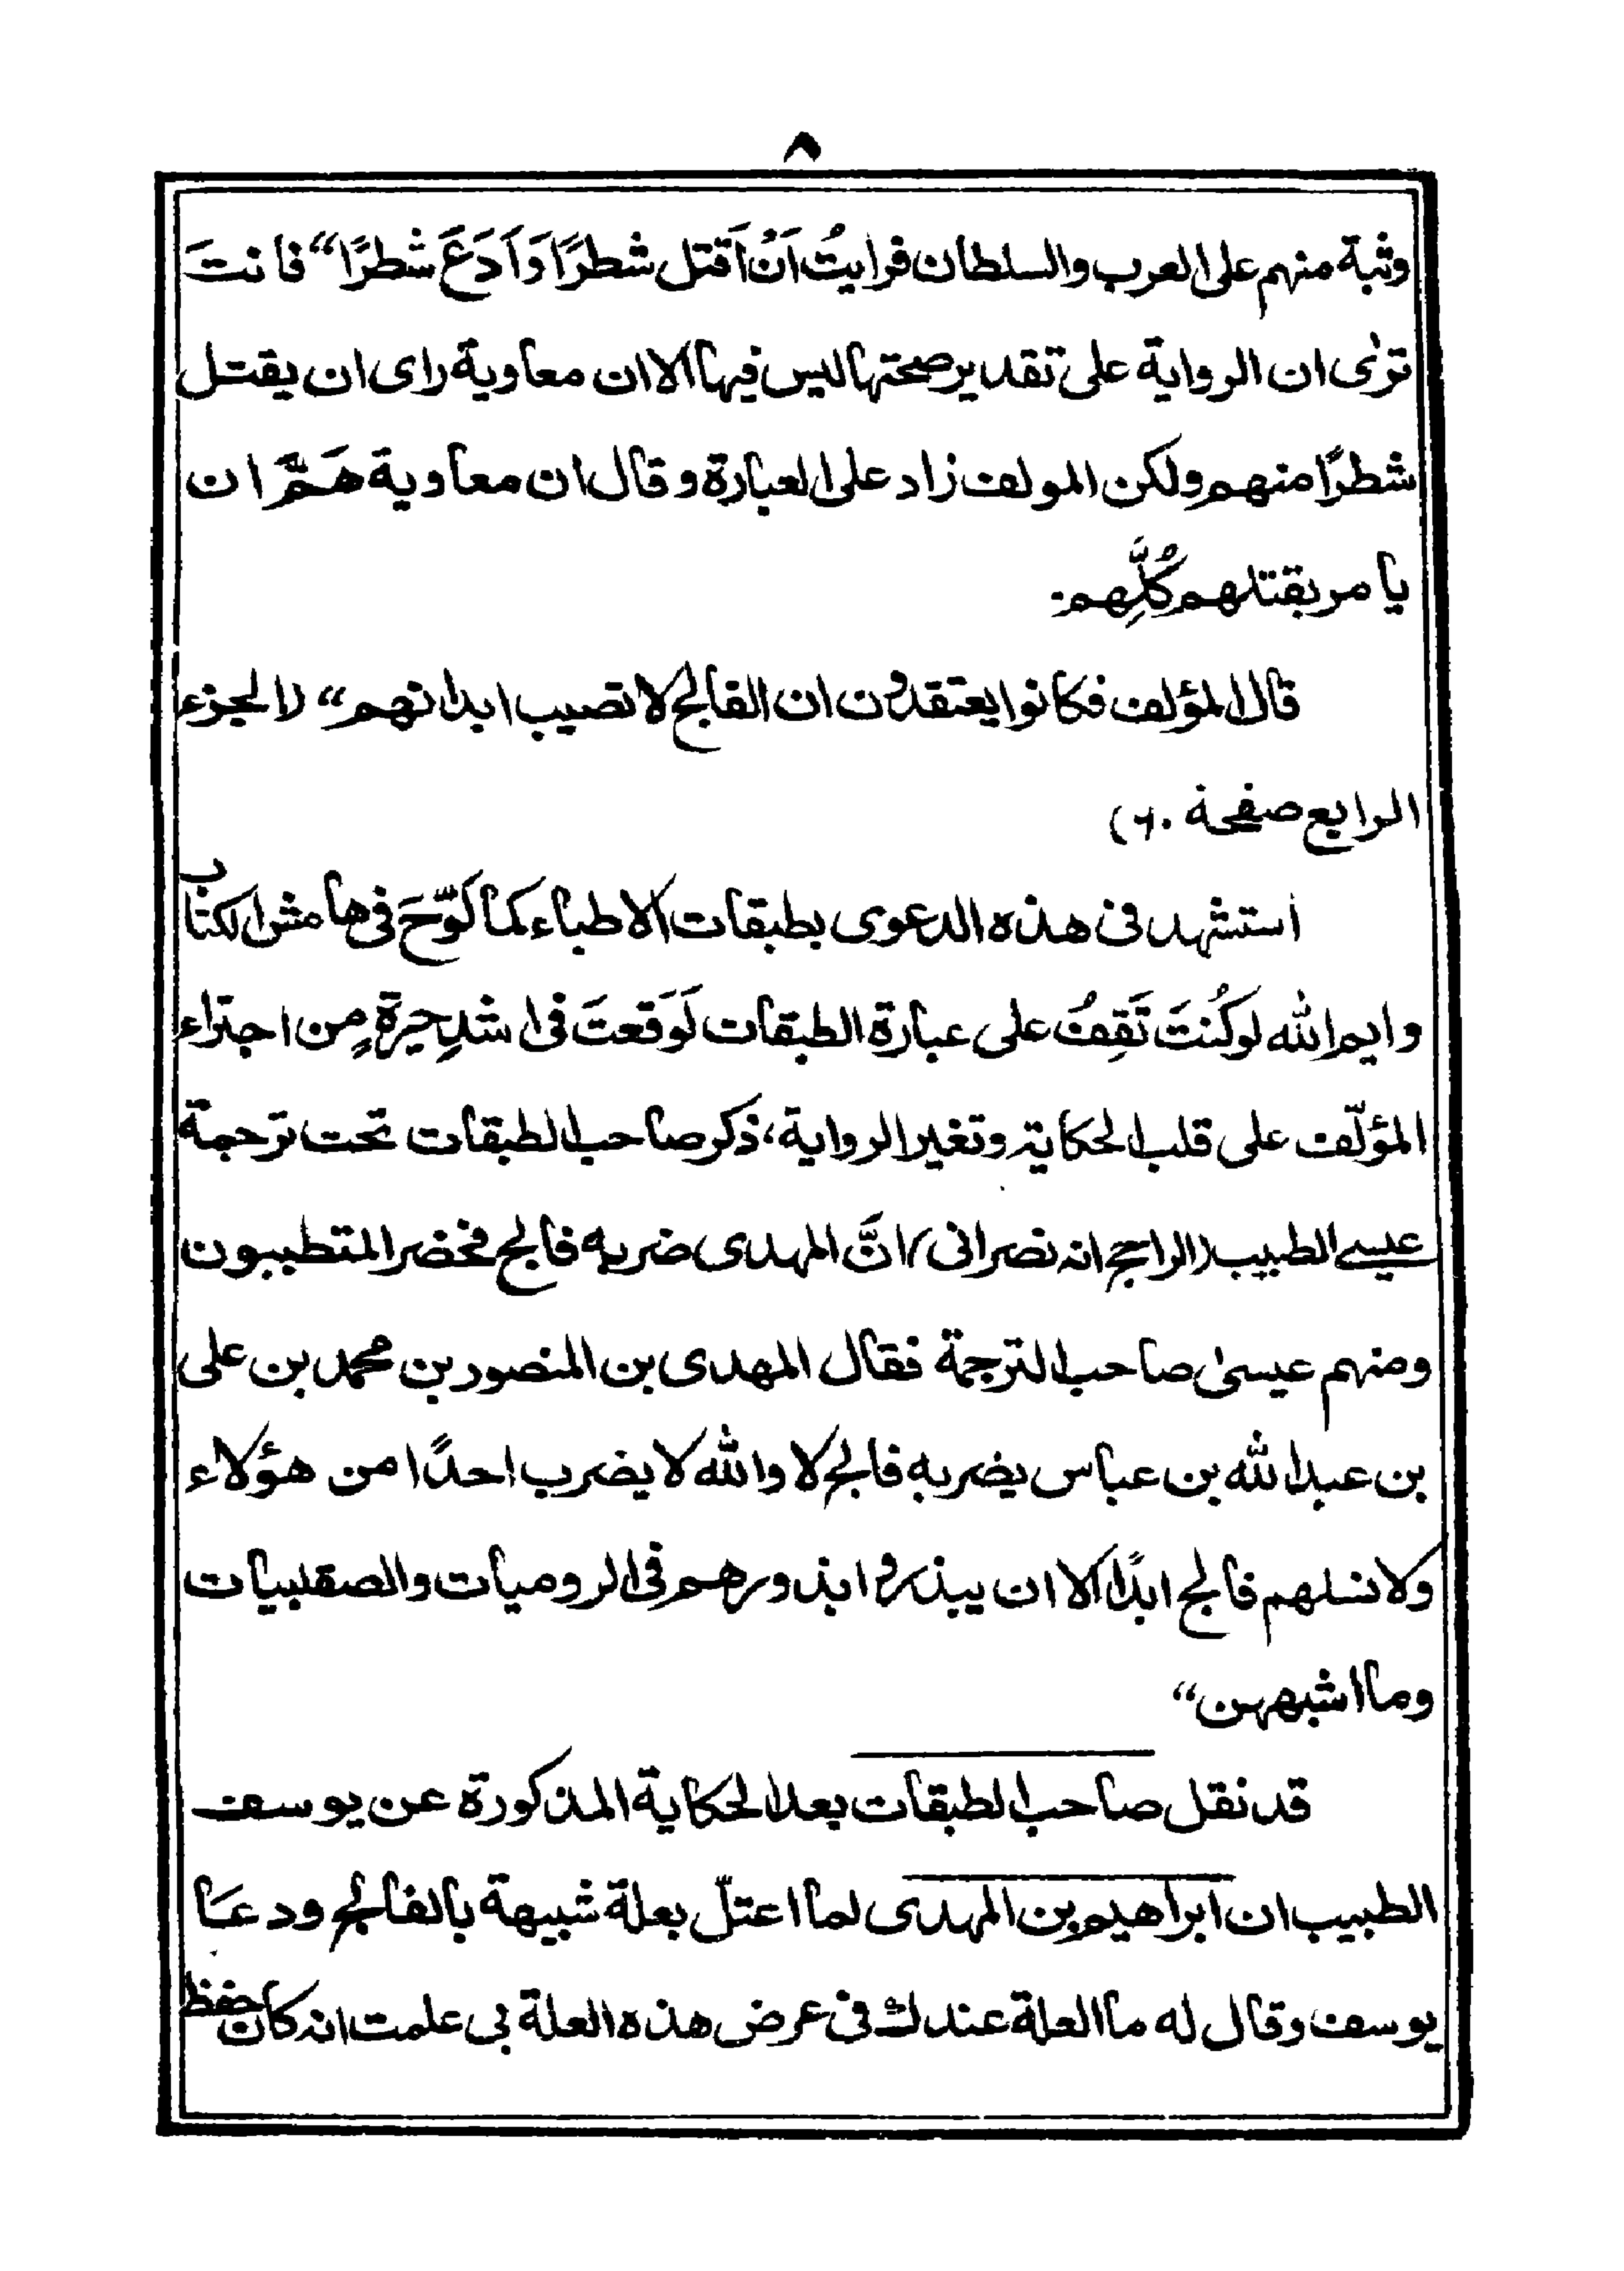 ٨
وثبة منهم على العرب والسلطان فرايتُ اَنْ اَقتل شطرًا وَاَدَعَ شطرًا“ فانتَ
ترٰى ان الرواية على تقدير صحتها ليس فيها الا ان معاوية راى ان يقتل
شطرًا منهم ولكن المولف زاد على العبارة وقال ان معاوية هَمَّ ان
يامر بقتلهم كُلِّهم۔
قال المؤلف فكانوا يعتقدون ان الفالج لا تصيب ابدانهم“ (الجزء
الرابع صفحة ٦٠)
استشهد فى هذه الدعوى بطبقات الاطباء كما لَوَّحَ فى هامش الكتاب
وايم الله لو كُنتَ تَقِفُ على عبارة الطبقات لَوَقعتَ فى اشدِ حيرةٍ مِن اجتراء
المؤلّف على قلب الحكاية وتغير الرواية، ذكر صاحب الطبقات تحت ترجمة
عيسى الطبيب (الراجح انه نصرانى) انَّ المهدى ضربه فالج فحضر المتطببون
ومنهم عيسىٰ صاحب الترجمة فقال المهدى بن المنصور بن محمد بن على
بن عبد الله بن عباس يضربه فالج لا والله لا يضرب احدًا من هؤلاء
ولا نسلهم فالج ابدًا الا ان يبذروا بذورهم فى الروميات والصقلبيات
وما اشبههن“
قد نقل صاحب الطبقات بعد الحكاية المذكورة عن يوسف
الطبيب ان ابراهيم بن المهدى لما اعتلّ بعلة شبيهة بالفالج ودعا
يوسف وقال له ما العلة عندك فى عرض هذه العلة بى علمت انه كان حفظ